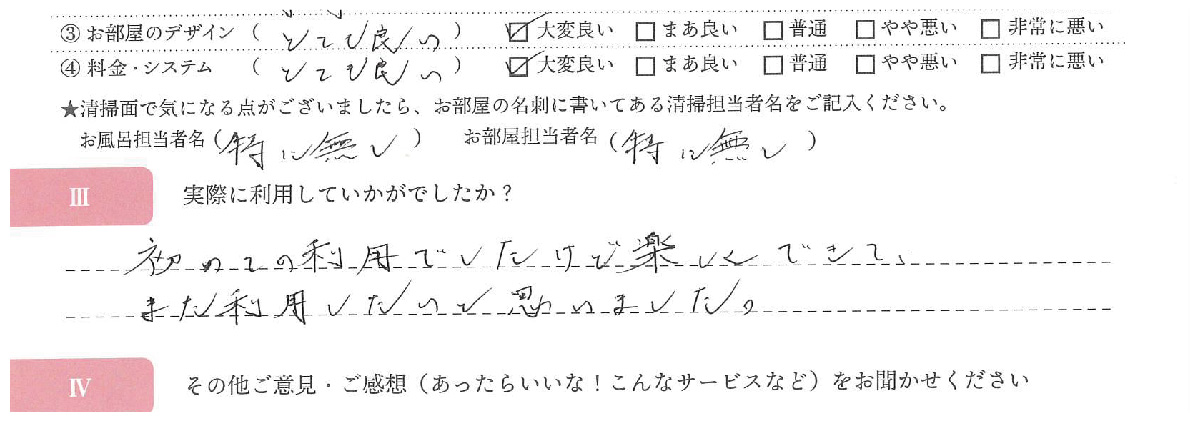 ③ お部屋のデザイン（ とても良い ） ☑ 大変良い □ まあ良い □ 普通 □ やや悪い □ 非常に悪い
④ 料金・システム （ とても良い ） ☑ 大変良い □ まあ良い □ 普通 □ やや悪い □ 非常に悪い
★清掃面で気になる点がございましたら、お部屋の名刺に書いてある清掃担当者名をご記入ください。
お風呂担当者名（特に無し） お部屋担当者名（特に無し）
Ⅲ 実際に利用していかがでしたか？
初めての利用でしたけど楽しくできて、
また利用したいと思いました。
Ⅳ その他ご意見・ご感想（あったらいいな！こんなサービスなど）をお聞かせください